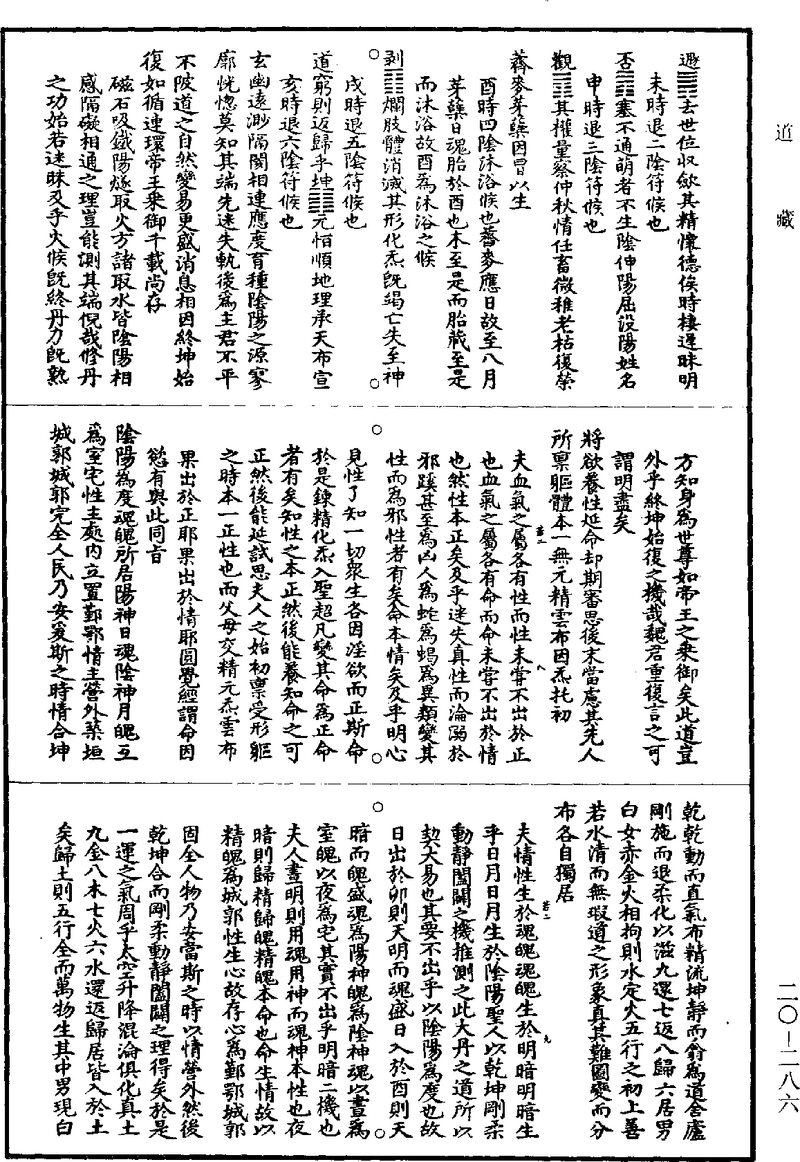 道藏
遯䷠去世位收斂其精懷德俟時棲遲昧明
未時退二陰符候也
否䷋塞不通萌者不生陰伸陽屈没陽姓名
申時退三陰符候也
觀䷓其權量察仲秋情任畜微稚老枯復榮
薺麥芽蘖因冒以生
酉時四陰沐浴候也薺麥應日故至八月
芽蘖日魂胎於酉也木至是而胎藏至是
而沐浴故酉爲沐浴之候
剥䷖爛肢體消滅其形化炁旣竭亡失至神
戌時退五陰符候也
道窮則返歸乎坤䷁元恒順地理承天布宣
亥時退六陰符候也
玄幽遠渺隔閡相連應度育種陰陽之源寥
廓恍惚莫知其端先迷失軌後爲主君不平
不陂道之自然變易更盛消息相因終坤始
復如循連環帝王乘御千載尚存
磁石吸鐵陽燧取火方諸取水皆陰陽相
感隔礙相通之理豈能測其端倪哉修丹
之功始若迷昧及乎火候旣終丹力旣熟
方知身爲世尊如帝王之乘御矣此道豈
外乎終坤始復之機哉魏君重復言之可
謂明盡矣
將欲養性延命却期審思後末當慮其先人
所禀軀體本一無元精雲布因炁托初
夫血氣之屬各有性而性未嘗不出於正
也血氣之屬各有命而命未嘗不出於情
也然性本正矣及乎迷失真性而淪溺於
邪蹊甚至爲凶人爲蛇爲蝎爲異類變其
性而爲邪性者有矣命本情矣及乎明心
見性了知一切衆生各因淫欲而正斯命
於是鍊精化炁入聖超凡變其命爲正命
者有矣知性之本正然後能養知命之可
正然後能延試思夫人之始初禀受形軀
之時本一正性也而父母交精元炁雲布
果出於正耶果出於情耶圓覺經謂命因
慾有與此同旨
陰陽爲度魂魄所居陽神日魂陰神月魄互
爲室宅性主處内立置鄞鄂情主營外築垣
城郭城郭完全人民乃安爰斯之時情合坤
乾乾動而直氣布精流坤靜而翕爲道舍廬
剛施而退柔化以滋九還七返八歸六居男
白女赤金火相拘則水定火五行之初上善
若水清而無瑕道之形象真其難圖變而分
布各自獨居
夫情性生於魂魄魂魄生於明暗明暗生
乎日月日月生於陰陽聖人以乾坤剛柔
動靜闔闢之機推測之此大丹之道所以
契大易也其要不出乎以陰陽爲度也故
日出於卯則天明而魂盛日入於酉則天
暗而魄盛魂爲陽神魄爲陰神魂以晝爲
室魄以夜爲宅其實不出乎明暗二機也
夫人晝明則用魂用神而魂神本性也夜
暗則歸精歸魄精魄本命也命生情故以
精魄爲城郭性生心故存心爲鄞鄂城郭
固全人物乃安當斯之時以情營外然後
乾坤合而剛柔動靜闔闢之理得矣於是
一運之氣周乎太空升降混淪俱化真土
九金八木七火六水還返歸居皆入於土
矣歸土則五行全而萬物生其中男現白
二〇—二八六